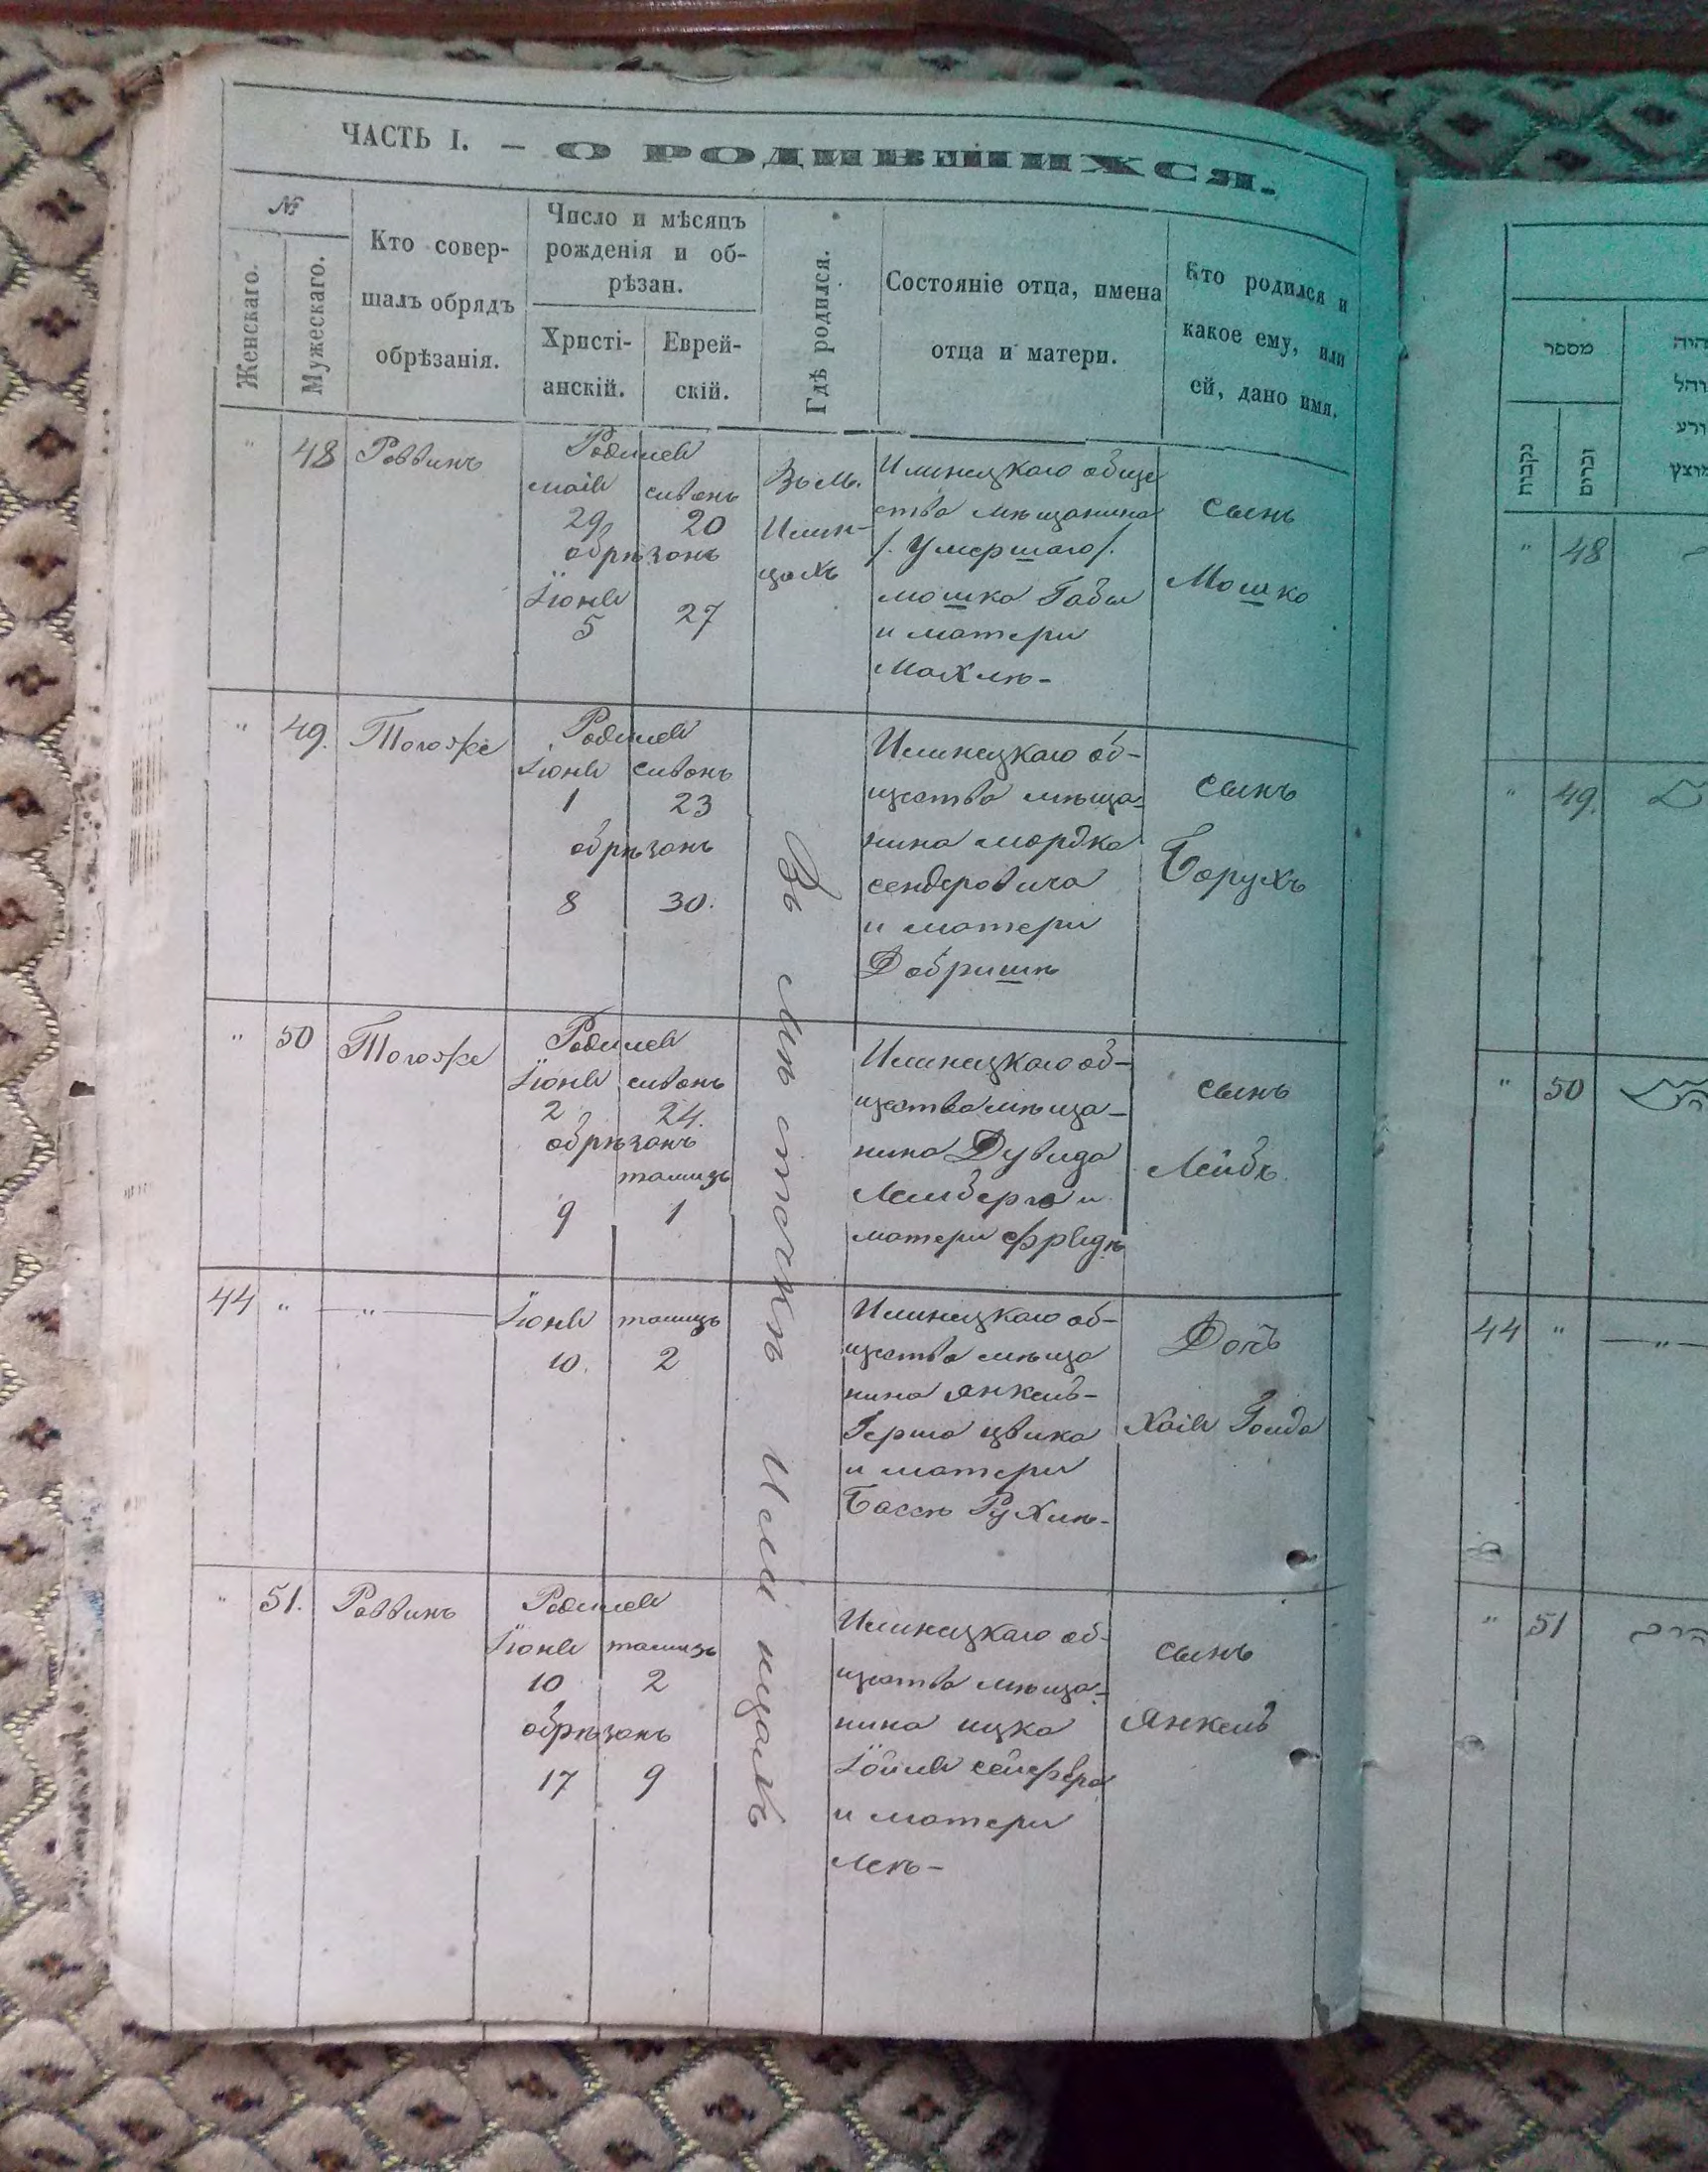 ЧАСТЬ I. — О РОДИВШИХСЯ.
№
Женскаго.
Мужескаго.
Кто совер-
шалъ обрядъ
обрѣзанія.
Число и мѣсяцъ
рожденія и об-
рѣзан.
Христі-
анскій.
Еврей-
скій.
Гдѣ родился.
Состояніе отца, имена
отца и матери.
Кто родился и
какое ему, или
ей, дано имя.
" 48 Раввинъ
Родился
маія сивонъ
29 20
обрѣзанъ
Іюня
5 27
Въ м.
Илин-
цахъ
Илинецкаго обще
ства мѣщанина
/. Умершаго /.
мошка Габы
и матери
Махлѣ-
сынъ
Мошко
" 49. Тогоже
Родился
Іюня сивонъ
1 23
обрѣзанъ
8 30.
Въ мѣстечкѣ Илинцахъ
Илинецкаго об-
щества мѣща-
нина мордка
сендеровича
и матери
Добришѣ
сынъ
Борухъ
" 50 Тогоже
Родился
Іюня сивонъ
2 24.
обрѣзанъ
тамизъ
9 1
Илинецкаго об-
щества мѣща-
нина Дувида
Лемберга и
матери Фрѣидѣ
сынъ
Лейбъ
44 " — " —
Іюня тамизъ
10. 2
Илинецкаго об-
щества мѣща
нина янкель-
Герша цвика
и матери
Бассѣ Рухлѣ-
Дочь
Хаія Голда
" 51. Раввинъ
Родился
Іюня тамизъ
10 2
обрѣзанъ
17 9
Илинецкаго об-
щества мѣща-
нина ицка
Іойля сейфера
и матери
Леѣ-
сынъ
янкель
מספר
נקבות
זכרים
" 48
" 49.
" 50
44 "
" 51